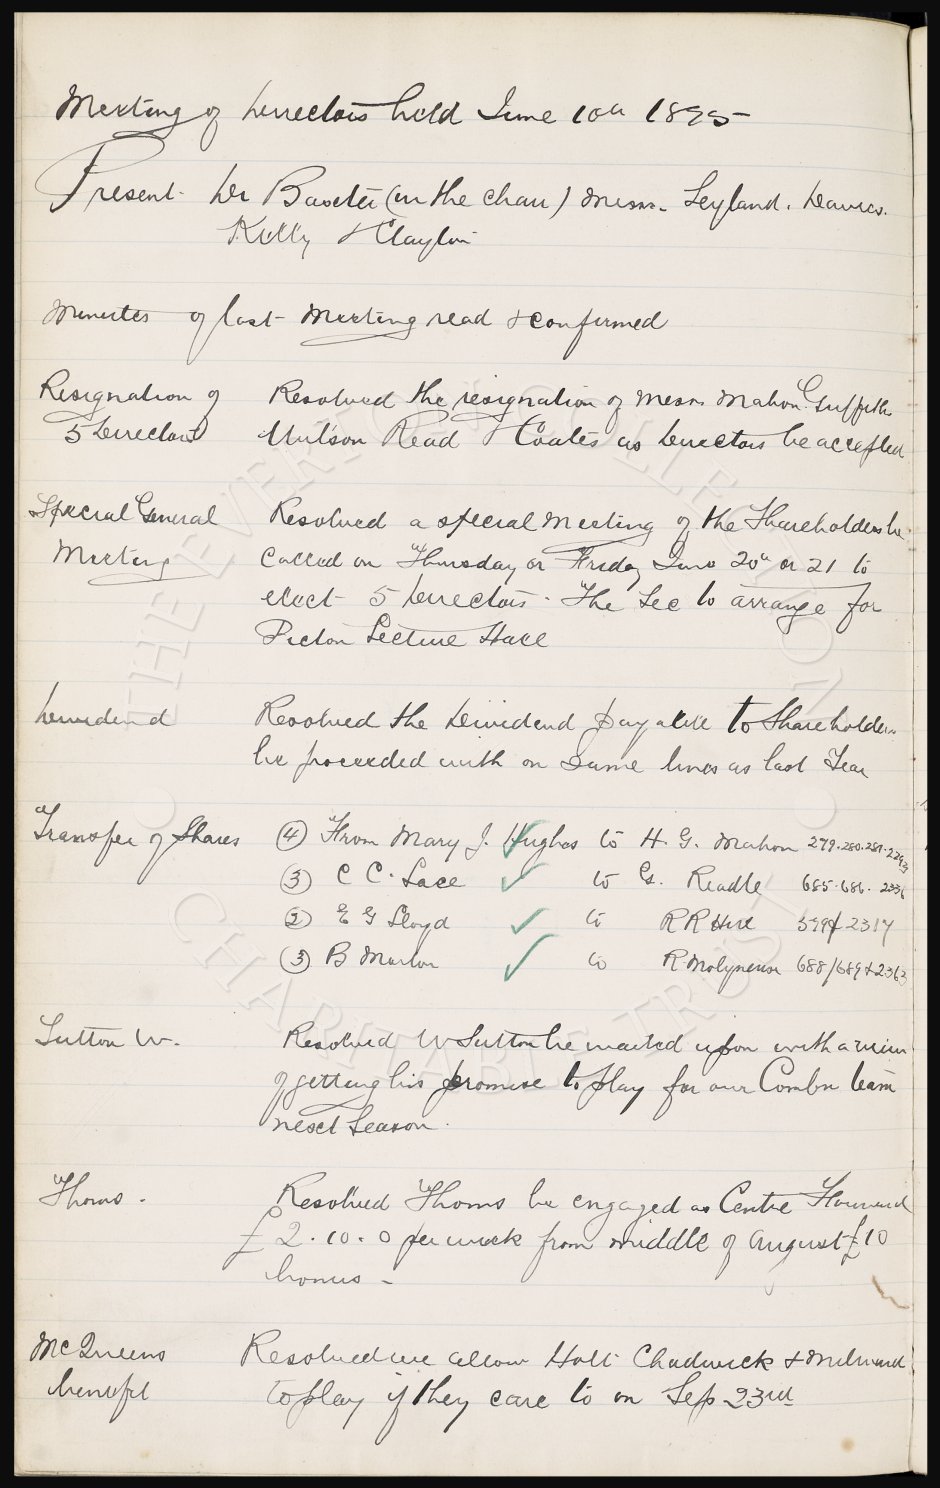 Meeting of Directors held June 10th 1895
Present Dr Baxter (in the chair) Messrs. Leyland. Davies.
Kelly & Clayton
Minutes of last Meeting read & confirmed
Resignation of
5 Directors
Resolved the resignation of Messrs Mahon Griffiths
Wilson Read & Coates as Directors be accepted
Special General
Meeting
Resolved a special Meeting of the Shareholders be
called on Thursday or Friday June 20th or 21 to
elect 5 Directors. The Sec to arrange for
Picton Lecture Hall
Dividend
Resolved the Dividend payable to Shareholders
be proceeded with on same lines as last Year
Transfer of Shares
(4) From Mary J. Hughes to H. G. Mahon 279.280.281.
(3) C C. Lace to G. Readle 685.686. 2336
(2) E G Lloyd to R R Hire 599 & 2317
(3) B Marlow to R. Molyneux 688/689 & 2363
Sutton W.
Resolved W Sutton be waited upon with a view
of getting his promise to play for our Combn team
next Season.
Thoms.
Resolved Thoms be engaged as Centre Forward
£2.10.0 per week from middle of August £10
bonus -
McQueens
benefit
Resolved we allow Holt Chadwick & Milward
to play if they care to on Sep 23rd
THE EVERTON COLLECTION
CHARITABLE TRUST